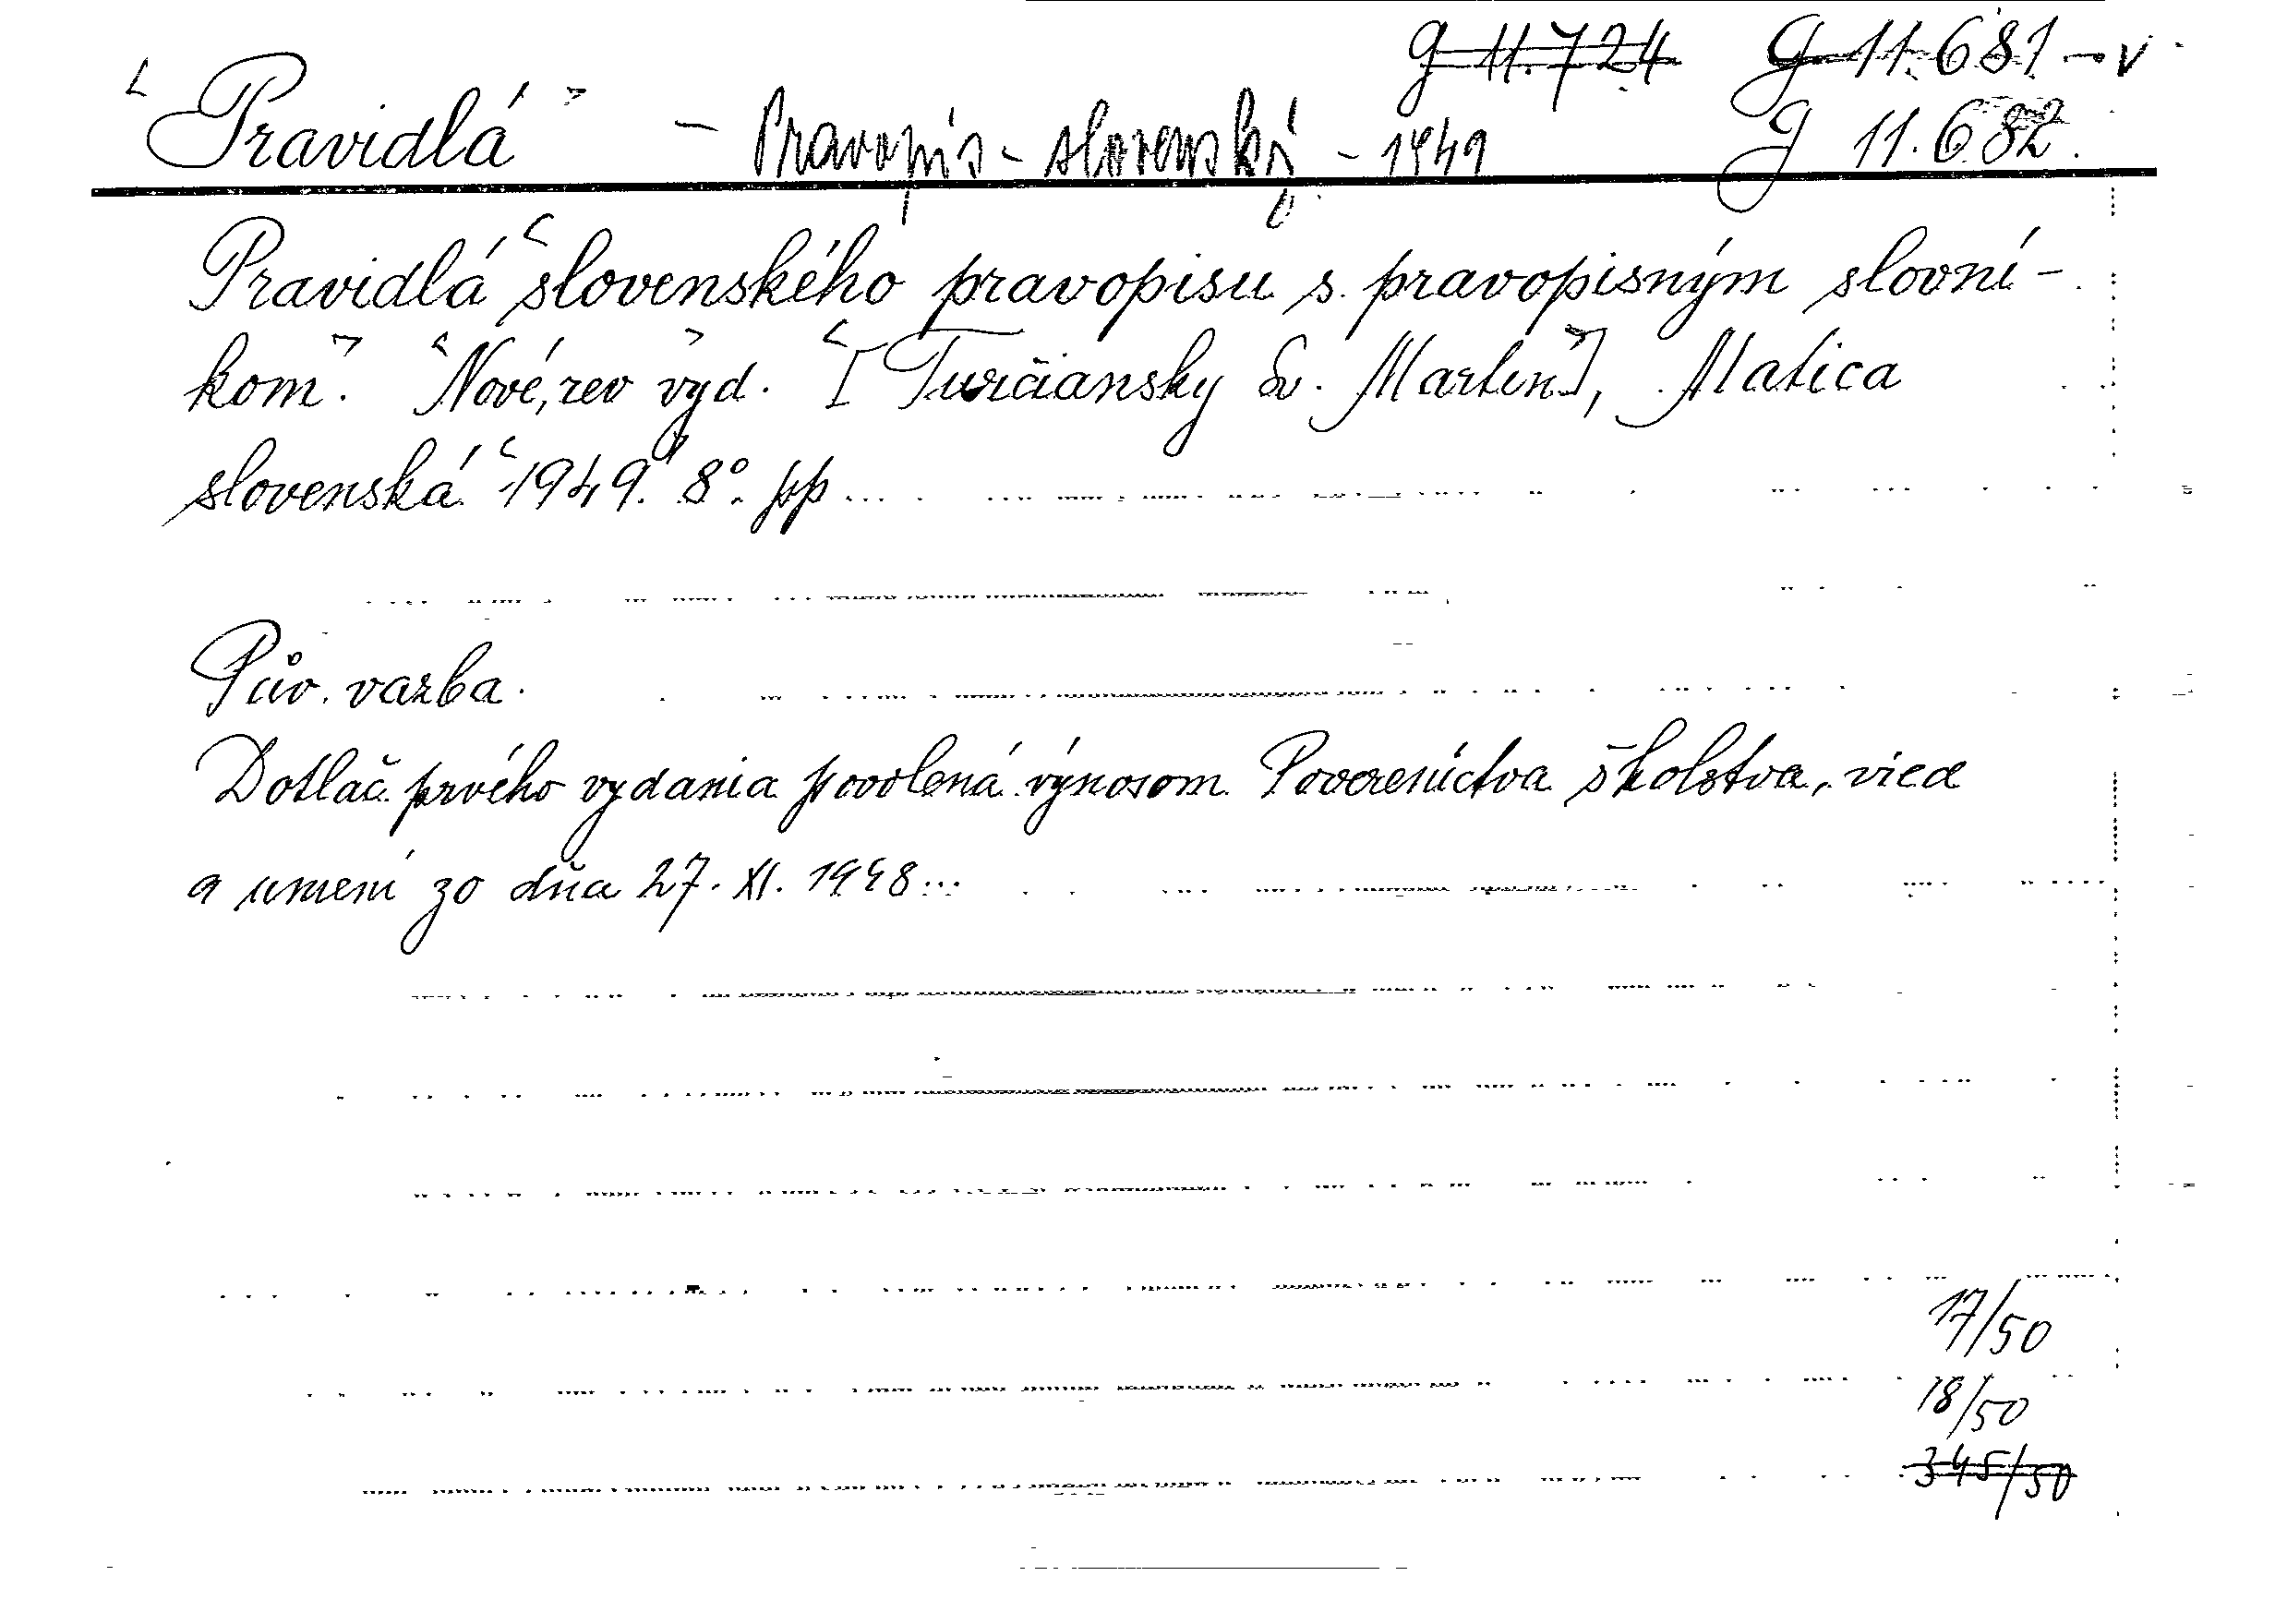 g 11.724 g 11.681 - v
Pravidlá - Pravopis - slovenský - 1949 g 11.682.
Pravidlá slovenského pravopisu s pravopisným slovní-
kom. Nové, rev vyd. [Turčiansky Sv. Martin], Matica
slovenská 1949. 8°. pp...
Pův. vazba.
Dotlač prvého vydania povolená výnosom Povereníctva školstva, vied
a umení zo dňa 27. XI. 1948...
17/50
18/50
345/50